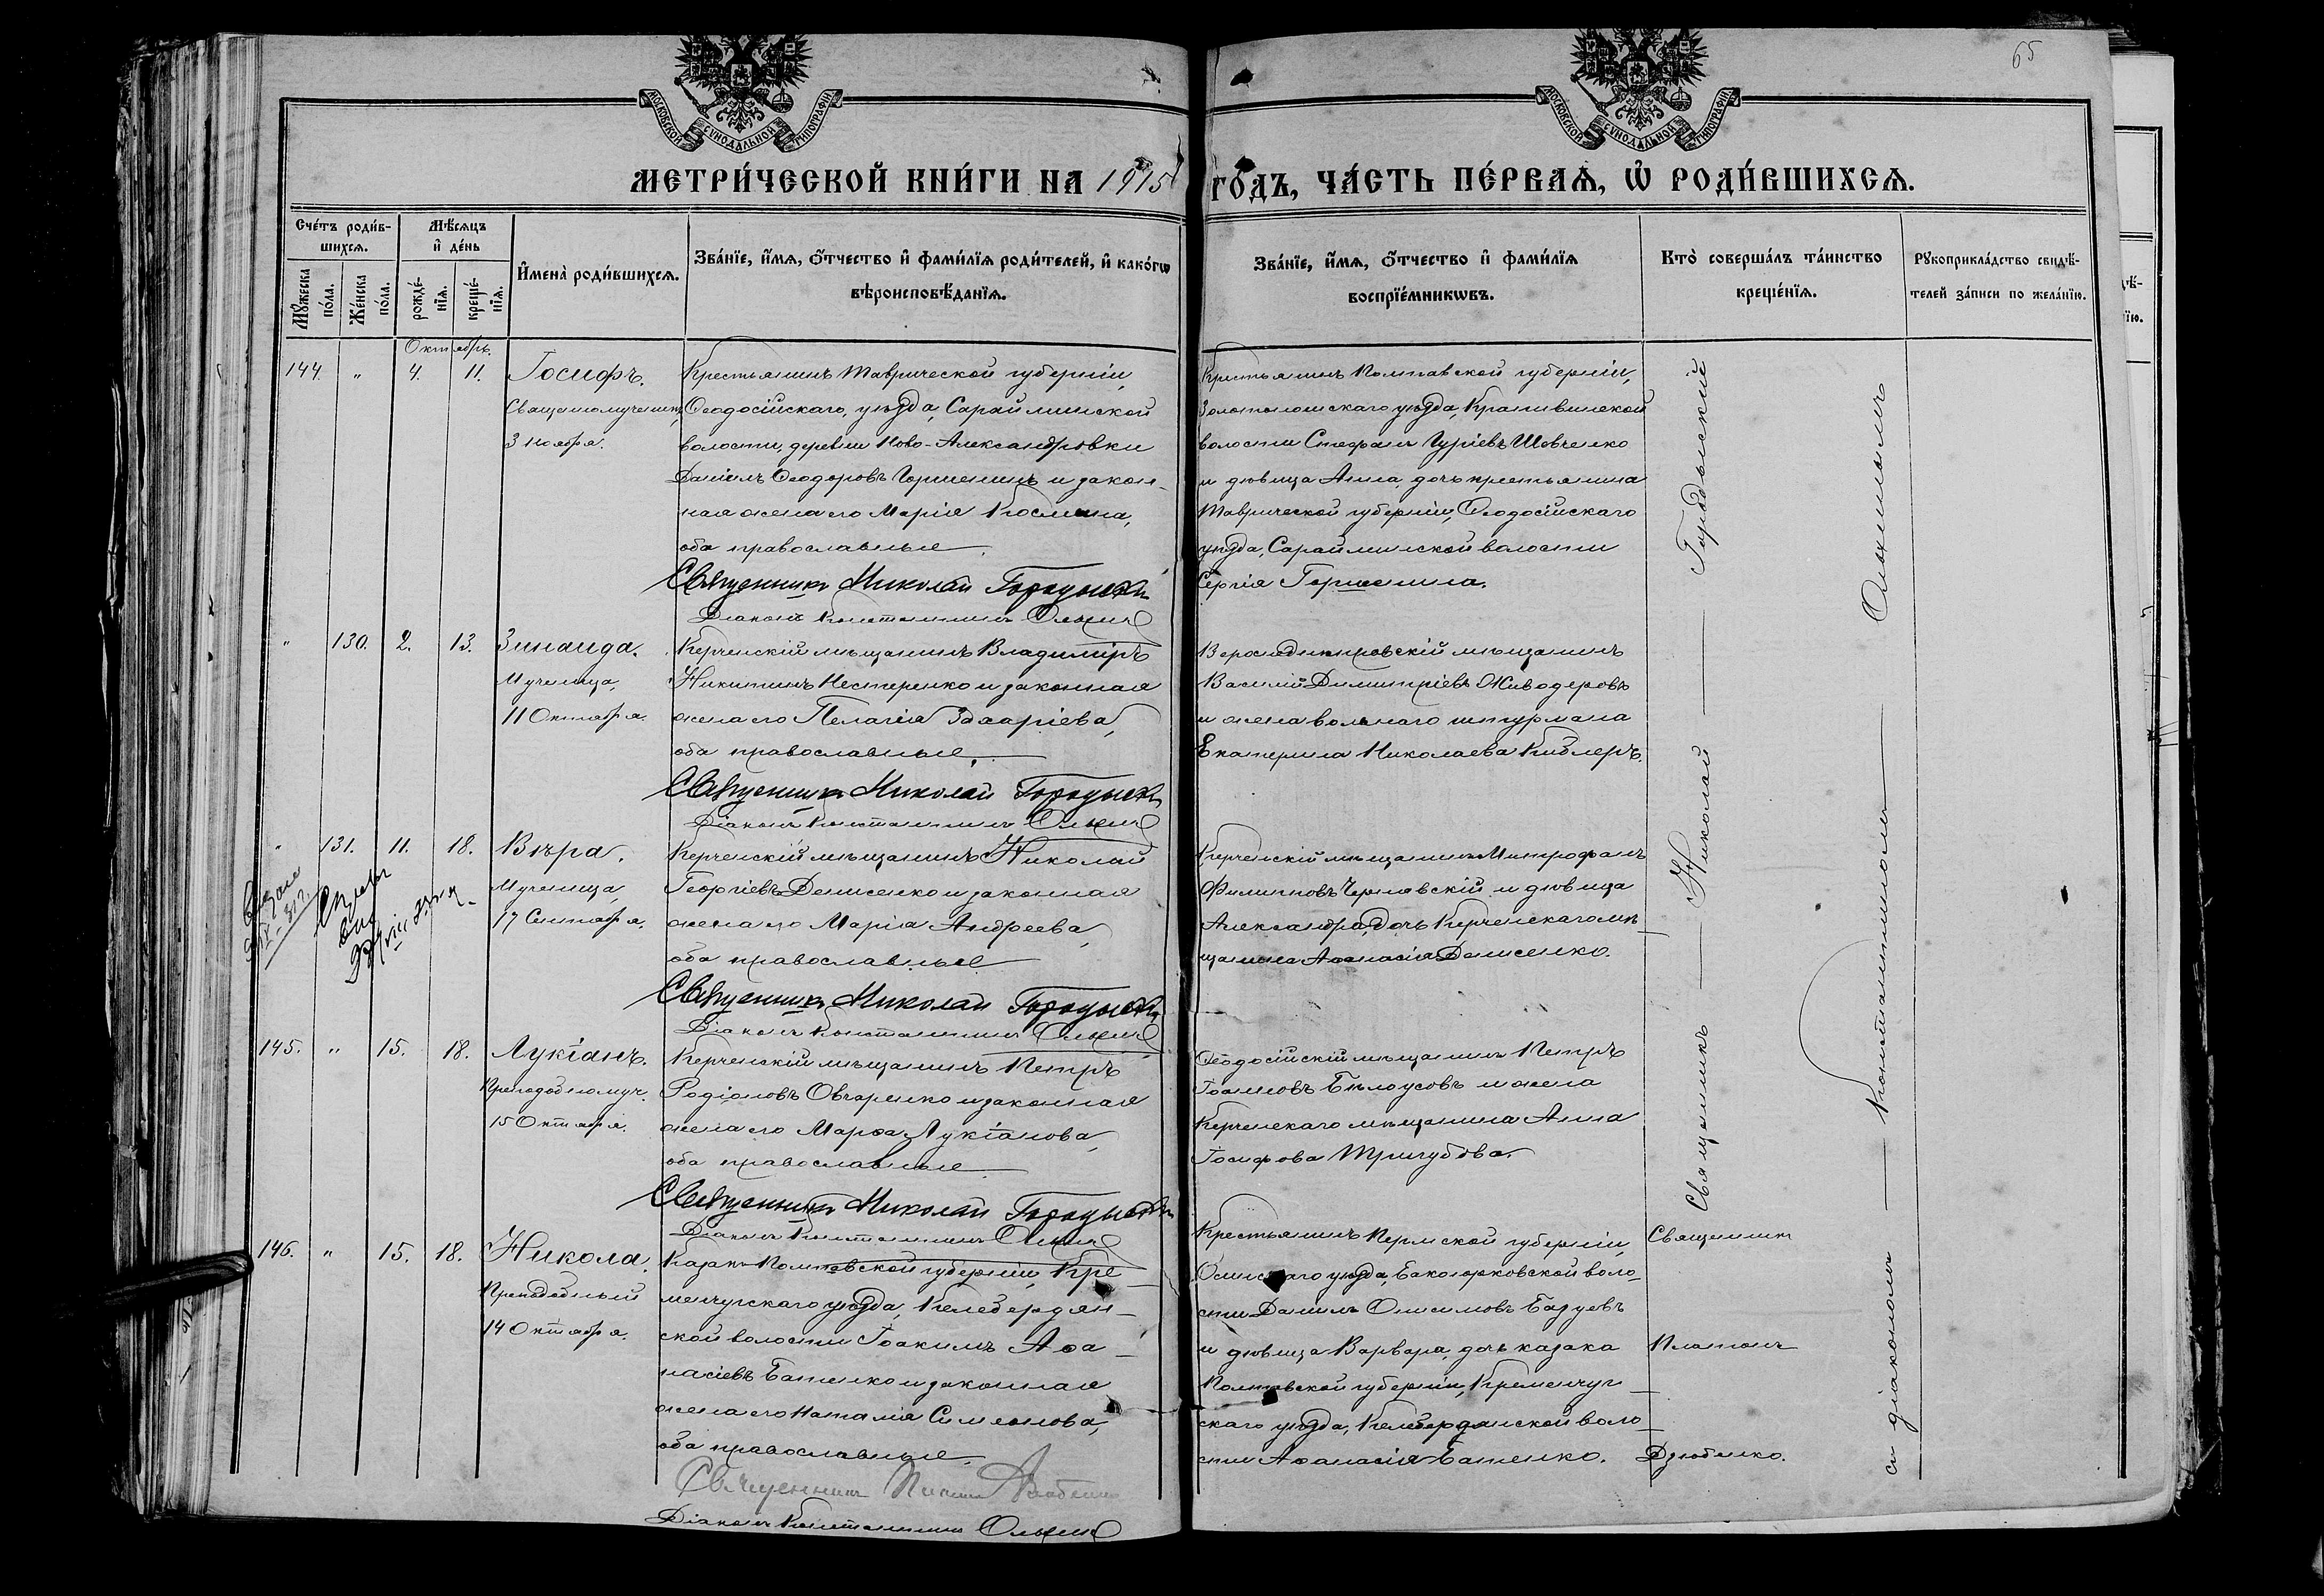 65
МОСКОВСКОЙ СѴНОДАЛЬНОЙ ТИПОГРАФІИ
МОСКОВСКОЙ СѴНОДАЛЬНОЙ ТИПОГРАФІИ
МЕТРИ́ЧЕСКОЙ КНИ́ГИ НА 1915 ГО́ДЪ, ЧА́СТЬ ПЕ́РВАЯ, Ѡ РОДИ́ВШИХСЯ.
Сче́тъ роди́в-
шихся.
Мꙋ́жеска по́ла.
Же́нска по́ла.
Мѣ́сяцъ
и҆ де́нь
рожде́-нїя.
креще́-нїя.
И҆мена̀ роди́вшихся.
Зва́нїе, и҆́мя, ѻ҆́тчество и҆ фами́лїя роди́телей, и҆ како́гѡ
вѣроисповѣ́данїя.
Зва́нїе, и҆́мя, ѻ҆́тчество и҆ фами́лїя
воспрїе́мникѡвъ.
Кто̀ соверша́лъ та́инство
креще́нїя.
Рꙋкоприкла́дство свидѣ́-
телей за́писи по жела́нїю.
Октябрь.
144. " 4. 11. Іосифъ.
Священномученик,
3 ноября.
Крестьянинъ Таврической губерніи,
Ѳеодосійскаго уѣзда, Сарайминской
волости, деревни Ново-Александровки
Даніилъ Ѳеодоровъ Горшенинъ и закон-
ная жена его Марія Косьмина,
оба православные.
Священникъ Николай Городыскій
Діаконъ Константинъ
Крестьянинъ Полтавской губерніи,
Золотоношскаго уѣзда, Кропивинской
волости Стефанъ Гуріевъ Шевченко
и дѣвица Анна, дочь крестьянина
Таврической губерніи, Ѳеодосійскаго
уѣзда, Сарайминской волости
Сергія Горшенина.
" 130. 2. 13. Зинаида.
Мученица,
11 Октября.
Керченскій мѣщанинъ Владиміръ
Никитинъ Нестеренко и законная
жена его Пелагія Захаріева,
оба православные.
Священникъ Николай Городыскій
Діаконъ Константинъ
Верхнеднѣпровскій мѣщанинъ
Василій Димитріевъ Живодеровъ
и жена вольнаго штурмана
Екатерина Николаева Киблеръ.
" 131. 11. 18. Вѣра.
Мученица,
17 Сентября.
Керченскій мѣщанинъ Николай
Георгіевъ Денисенко и законная
жена его Марія Андреева,
оба православные
Священникъ Николай Городыскій
Діаконъ Константинъ
Керченскій мѣщанинъ Митрофанъ
Филипповъ Чернявскій и дѣвица
Александра, дочь Керченскаго мѣ-
щанина Аѳанасія Денисенко.
145. " 15. 18. Лукіанъ.
Преподобномуч.
15 Октября.
Керченскій мѣщанинъ Петръ
Родіоновъ Овчаренко и законная
жена его Марѳа Лукіанова,
оба православные
Священникъ Николай Городыскій
Діаконъ Константинъ
Ѳеодосійскій мѣщанинъ Петръ
Іоанновъ Бѣлоусовъ и жена
Керченскаго мѣщанина Анна
Іосифова Тригубова.
Священникъ — Николай — Городыскій
съ діакономъ — Константиномъ
146. " 15. 18. Никола.
Преподобный
14 Октября.
Казакъ Полтавской губерніи, Кре-
менчугскаго уѣзда, Келебердян-
ской волости Іоакимъ Аѳа-
насіевъ Батенко и законная
жена его Наталія Симеонова,
оба православные.
Священникъ
Діаконъ Константинъ
Крестьянинъ Пермской губерніи,
Осинскаго уѣзда, волo-
сти Даніилъ Онисимовъ Базуевъ
и дѣвица Варвара, дочь казака
Полтавской губерніи, Кременчуг-
скаго уѣзда, Келебердянской воло-
сти Аѳанасія Батенко.
Священникъ
Платонъ
Дзюбенко.